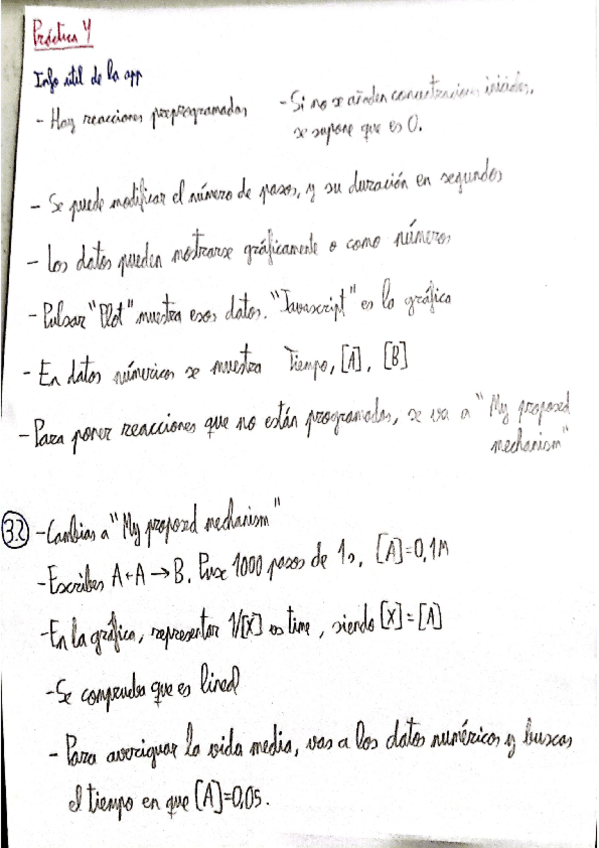 Práctica 4
Info útil de la app
- Hay reacciones preprogramadas
- Si no se añaden concentraciones iniciales,
se supone que es 0.
- Se puede modificar el número de pasos, y su duración en segundos
- Los datos pueden mostrarse gráficamente o como números
- Pulsar "Plot" muestra esos datos. "Javascript" es la gráfica
- En datos númericos se muestra Tiempo, [A], [B]
- Para poner reacciones que no están programadas, se va a "My proposed
mechanism"
3.2 - Cambias a "My proposed mechanism"
- Escribes A+A → B. Puse 1000 pasos de 1s, [A]=0,1M
- En la gráfica, representar 1/[X] vs time, siendo [X]=[A]
- Se comprueba que es lineal
- Para averiguar la vida media, vas a los datos numéricos y buscas
el tiempo en que [A]=0,05.